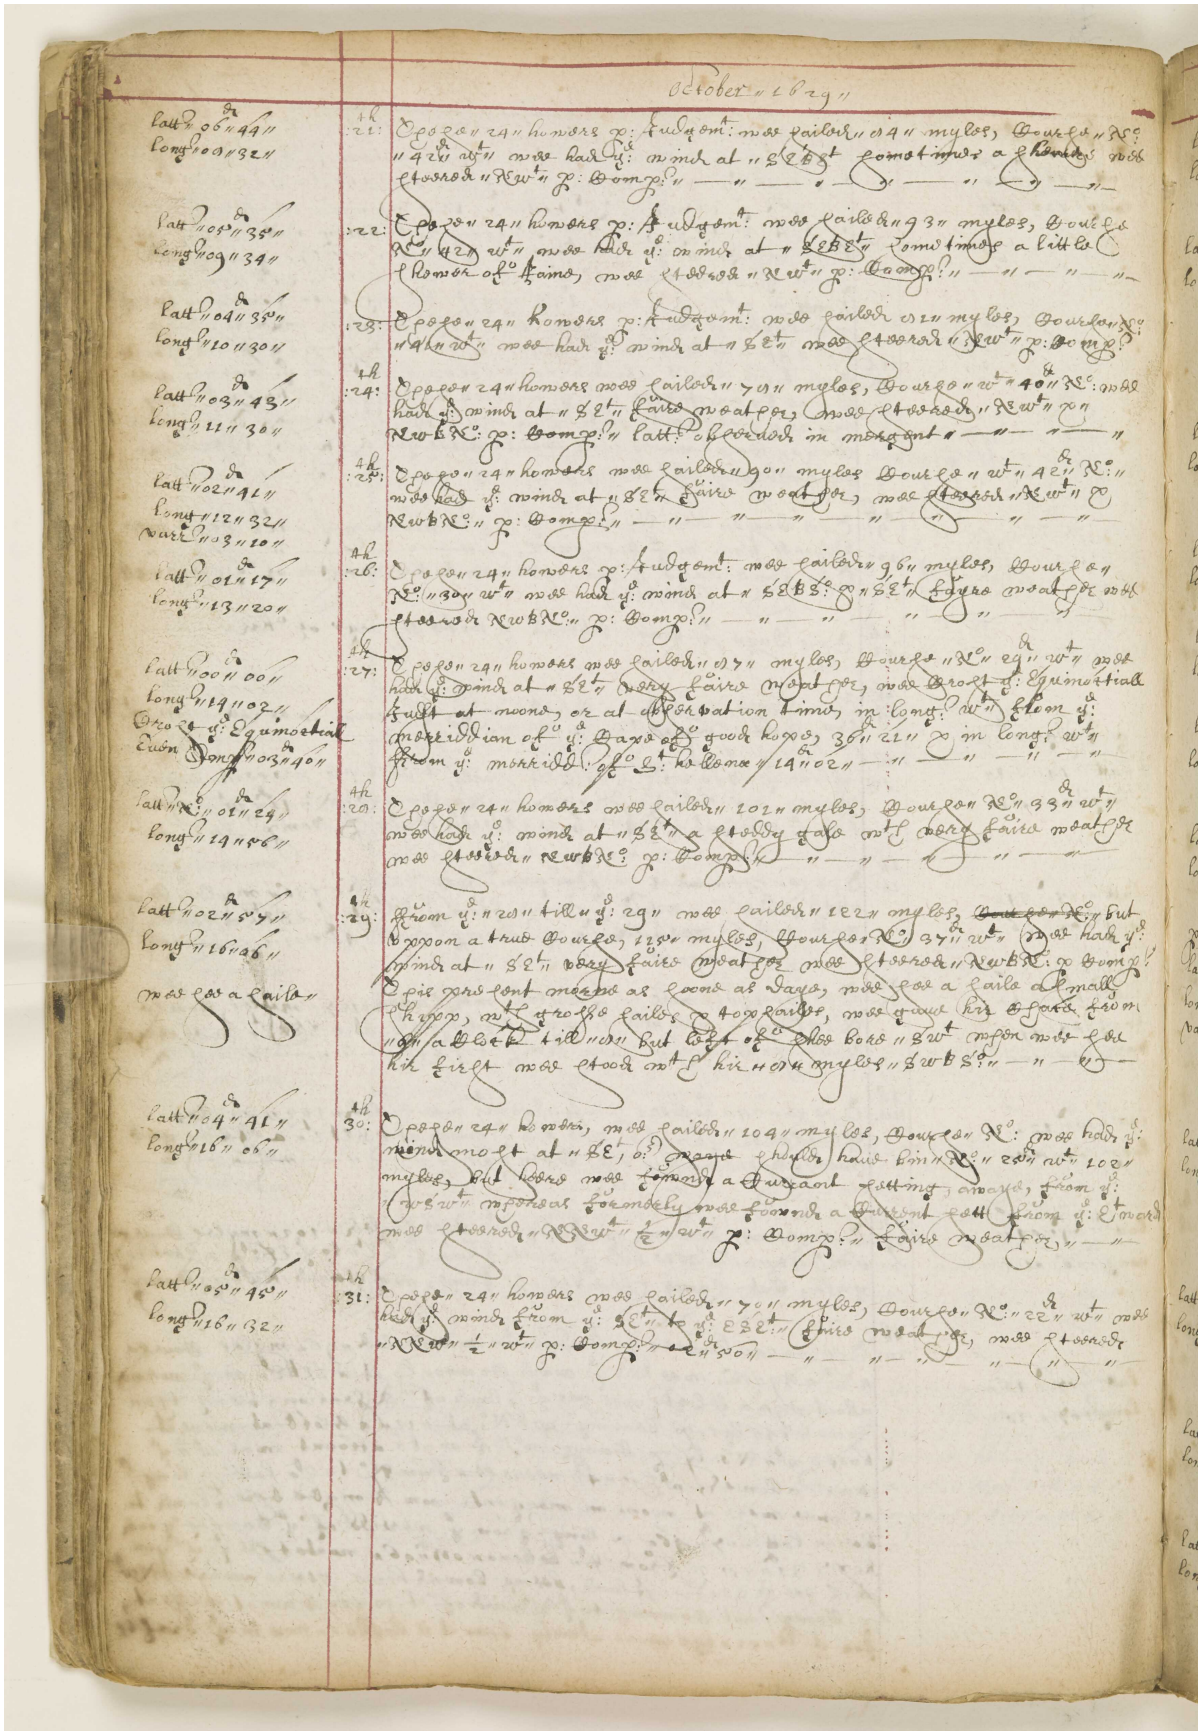 October " 1629 "
latt: " 06 " 44 "
long: " 09 " 32 "
:21: These " 24 " howers p: Judgemt: wee sailed " 84 " myles, Course " No:
" 42d " wt " wee had ye: wind at " SEBEt sometimes a shower wee
steered " NWt " p: Comp: "
latt: " 05 " 35 "
long: " 09 " 34 "
:22: These " 24 " howers p: Judgemt: wee sailed " 93 " myles, Course
No " 42 " wt " wee had ye: wind at " SEBEt " sometimes a little
shower of Raine, wee steered " NWt " p: Comp: "
latt: " 04 " 35 "
long: " 10 " 30 "
:23: These " 24 " howers p: Judgemt: wee sailed 81 " myles, Course " No:
" 41 " wt " wee had ye: wind at " SEt " wee steered " NWt " p: Comp:
latt: " 03 " 43 "
long: " 11 " 30 "
th
:24: These " 24 " howers wee sailed " 78 " myles, Course " wt " 40d " No: wee
had ye: wind at " SEt " faire weather, wee steered " NWt " &
NWBNo: p: Comp: " latt: observed in mergent "
latt: " 02 " 41 "
long: " 12 " 32 "
varr: " 03 " 10 "
th
:25: These " 24 " howers wee sailed " 90 " myles Course " wt " 42d " No: "
wee had ye: wind at " SEt " faire weather, wee steered " NWt " &
NWBNo: " p: Comp: "
latt: " 01 " 17 "
long: " 13 " 20 "
th
:26: These " 24 " howers p: Judgemt: wee sailed " 96 " myles, Course "
No: " 30 " wt " wee had ye: wind at " SEBSo: & " SEt " fayre weather wee
steered NWBNo: " p: Comp: "
latt: " 00 " 00 "
long: " 14 " 02 "
Crost ye: Equinoctiall
th
:27: These " 24 " howers wee sailed " 87 " myles, Course " No " 29d " wt " wee
had ye: wind at " SEt " very faire weather, wee Crost ye: Equinoctiall
Just at noone, or at observation time, in long: wt: from ye:
merriddian of ye: Cape of good hope, 36d " 21 " & in long: wt "
from ye: merridd: of St: hellena " 14d " 02 "
latt: " No: " 01 " 24 "
long: " 14 " 56 "
th
:28: These " 24 " howers wee sailed " 101 " myles, Course " No " 33d " wt "
wee had ye: wind at " SEt " a steddy gale wth very faire weather
wee steered " NWBNo: p: Comp: "
latt: " 02 " 57 "
long: " 16 " 06 "
wee see a saile "
th
:29: From ye: " 28 " till " ye: 29 " wee sailed " 122 " myles, Course " No: " but
uppon a true Course, 115 " myles, Course " No " 37d " wt " wee had ye:
wind at " SEt " very faire weather wee steered " NWBNo: p Comp:
This present morne as soone as daye, wee see a saile a small
shipp, wth grosse sailes & topsailes, wee gave hir Chace from
" 6 " a Clock till " 8 " but left of shee bore " SWt when wee see
hir first wee stood wth hir " 8 " myles " SWBSo: "
latt: " 04 " 41 "
long: " 16 " 06 "
th
30: These " 24 " howers, wee sailed " 104 " myles, Course " No: wee had ye:
wind most at " SEt, or: waye should have bin " No: " 25d " wt " 102 "
myles, but heere wee fownd a Currant setting, awaye, from ye:
WSWt " whereas formerly wee fownd a Current sett from ye: Etward
wee steered " NNWt " 1/2 " wt " p: Comp: " faire weather, "
latt: " 05 " 45 "
long: " 16 " 32 "
th
:31: These " 24 " howers wee sailed " 70 " myles, Course " No: " 22d " wt " wee
had ye: wind from ye: SEt to ye: ESEt: " faire weather, wee steered
" NNW " 1/2 " wt " p: Comp: "